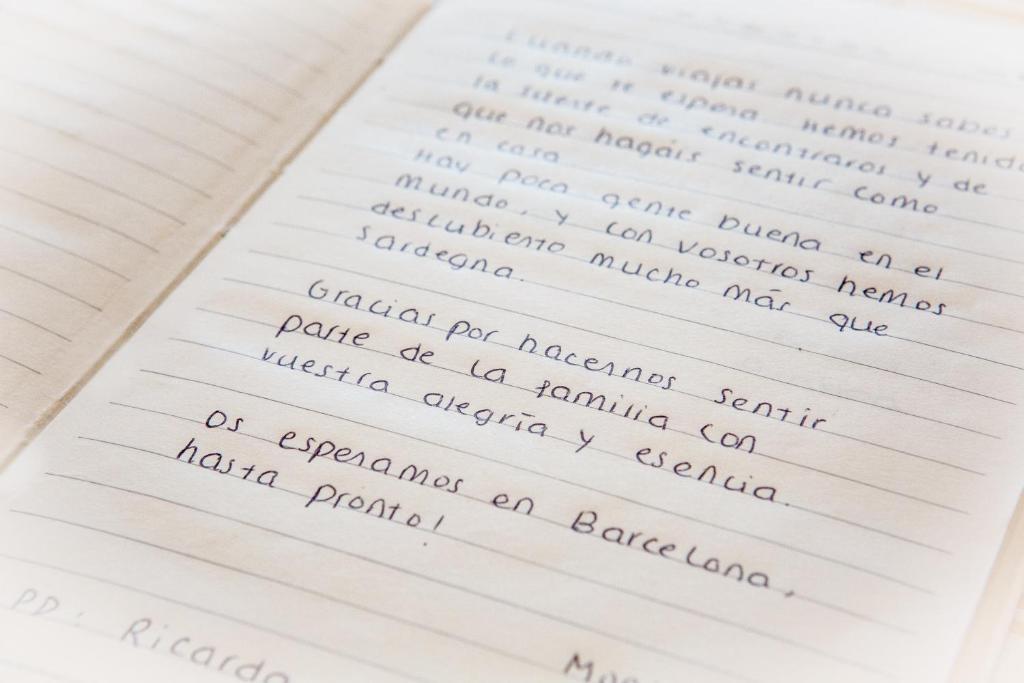 Cuando viajas nunca sabes
lo que te espera hemos tenido
la suerte de encontraros y de
que nos hagáis sentir como
en casa
Hay poca gente buena en el
mundo, y con vosotros hemos
descubierto mucho más que
sardegna.
Gracias por hacernos sentir
parte de la familia con
vuestra alegría y esencia.
Os esperamos en Barcelona,
hasta pronto!
PD: Ricardo